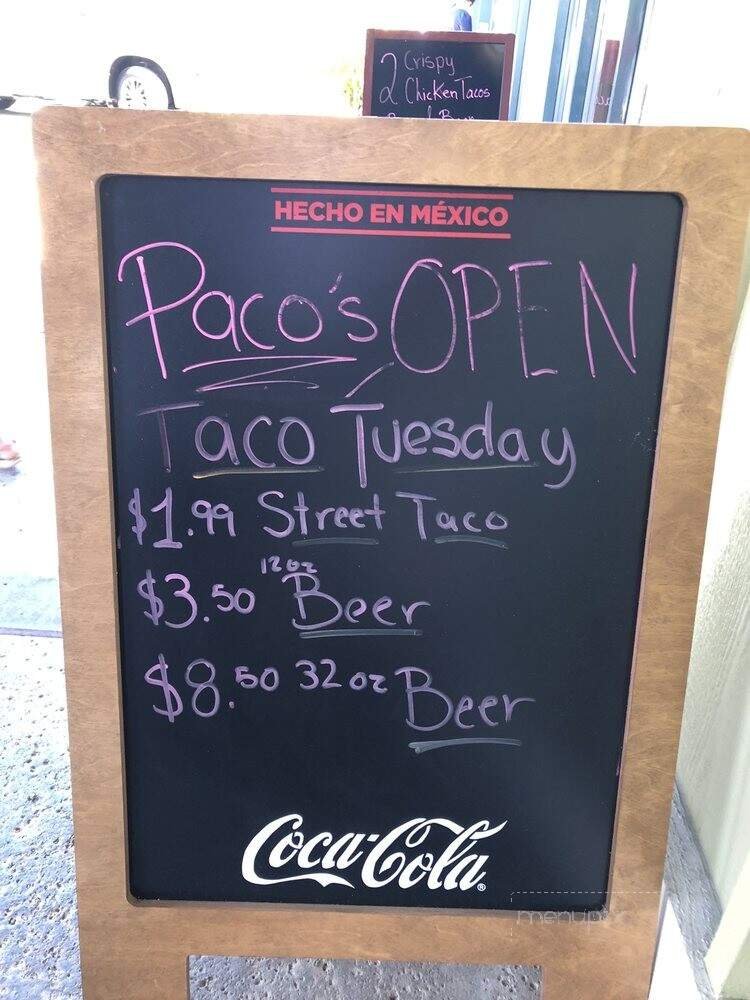 2 Crispy
Chicken Tacos
HECHO EN MÉXICO
Paco's OPEN
Taco Tuesday
$1.99 Street Taco
$3.50 12oz Beer
$8.50 32oz Beer
Coca-Cola®